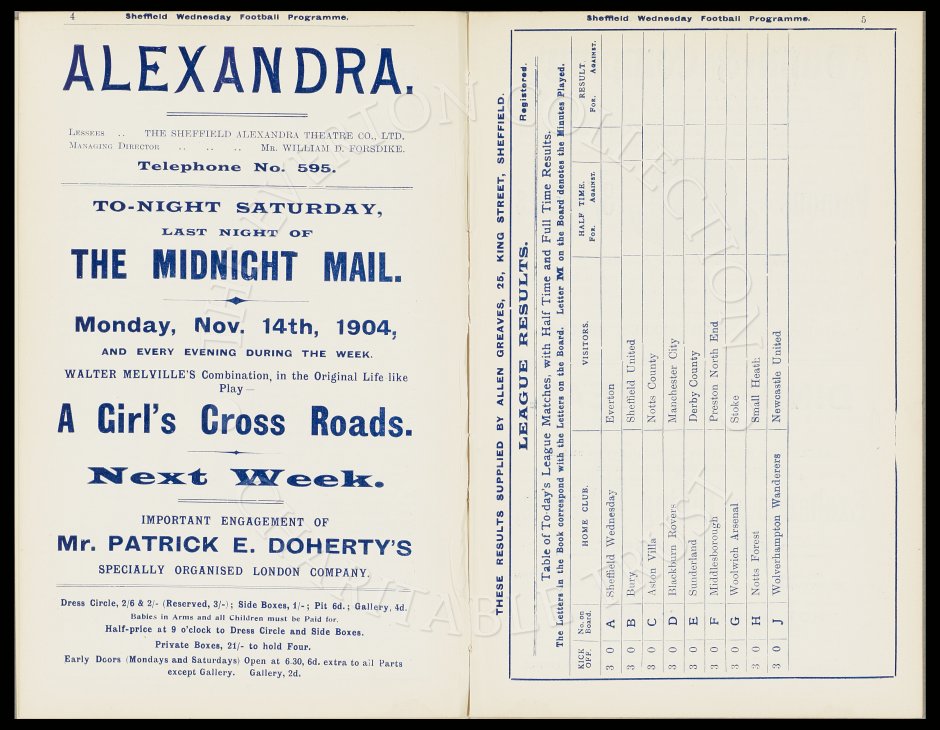 4 Sheffield Wednesday Football Programme.
ALEXANDRA.
LESSEES .. THE SHEFFIELD ALEXANDRA THEATRE CO., LTD.
MANAGING DIRECTOR .. .. .. MR. WILLIAM D. FORSDIKE.
Telephone No. 595.
TO-NIGHT SATURDAY,
LAST NIGHT OF
THE MIDNIGHT MAIL.
Monday, Nov. 14th, 1904,
AND EVERY EVENING DURING THE WEEK.
WALTER MELVILLE'S Combination, in the Original Life-like
Play—
A Girl's Cross Roads.
Next Week.
IMPORTANT ENGAGEMENT OF
Mr. PATRICK E. DOHERTY'S
SPECIALLY ORGANISED LONDON COMPANY.
Dress Circle, 2/6 & 2/- (Reserved, 3/-); Side Boxes, 1/-; Pit 6d.; Gallery, 4d.
Babies in Arms and all Children must be Paid for.
Half-price at 9 o'clock to Dress Circle and Side Boxes.
Private Boxes, 21/- to hold Four.
Early Doors (Mondays and Saturdays) Open at 6.30, 6d. extra to all Parts
except Gallery. Gallery, 2d.
Sheffield Wednesday Football Programme. 5
THESE RESULTS SUPPLIED BY ALLEN GREAVES, 25, KING STREET, SHEFFIELD.
LEAGUE RESULTS. Registered.
Table of To-day's League Matches, with Half Time and Full Time Results.
The Letters in the Book correspond with the Letters on the Board. Letter M on the Board denotes the Minutes Played.
KICK OFF. No. on Board. HOME CLUB. VISITORS. HALF TIME. For. Against. RESULT For. Against.
3 0 A Sheffield Wednesday Everton
3 0 B Bury Sheffield United
3 0 C Aston Villa Notts County
3 0 D Blackburn Rovers Manchester City
3 0 E Sunderland Derby County
3 0 F Middlesborough Preston North End
3 0 G Woolwich Arsenal Stoke
3 0 H Notts Forest Small Heath
3 0 J Wolverhampton Wanderers Newcastle United
THE EVERTON COLLECTION
CHARITABLE TRUST